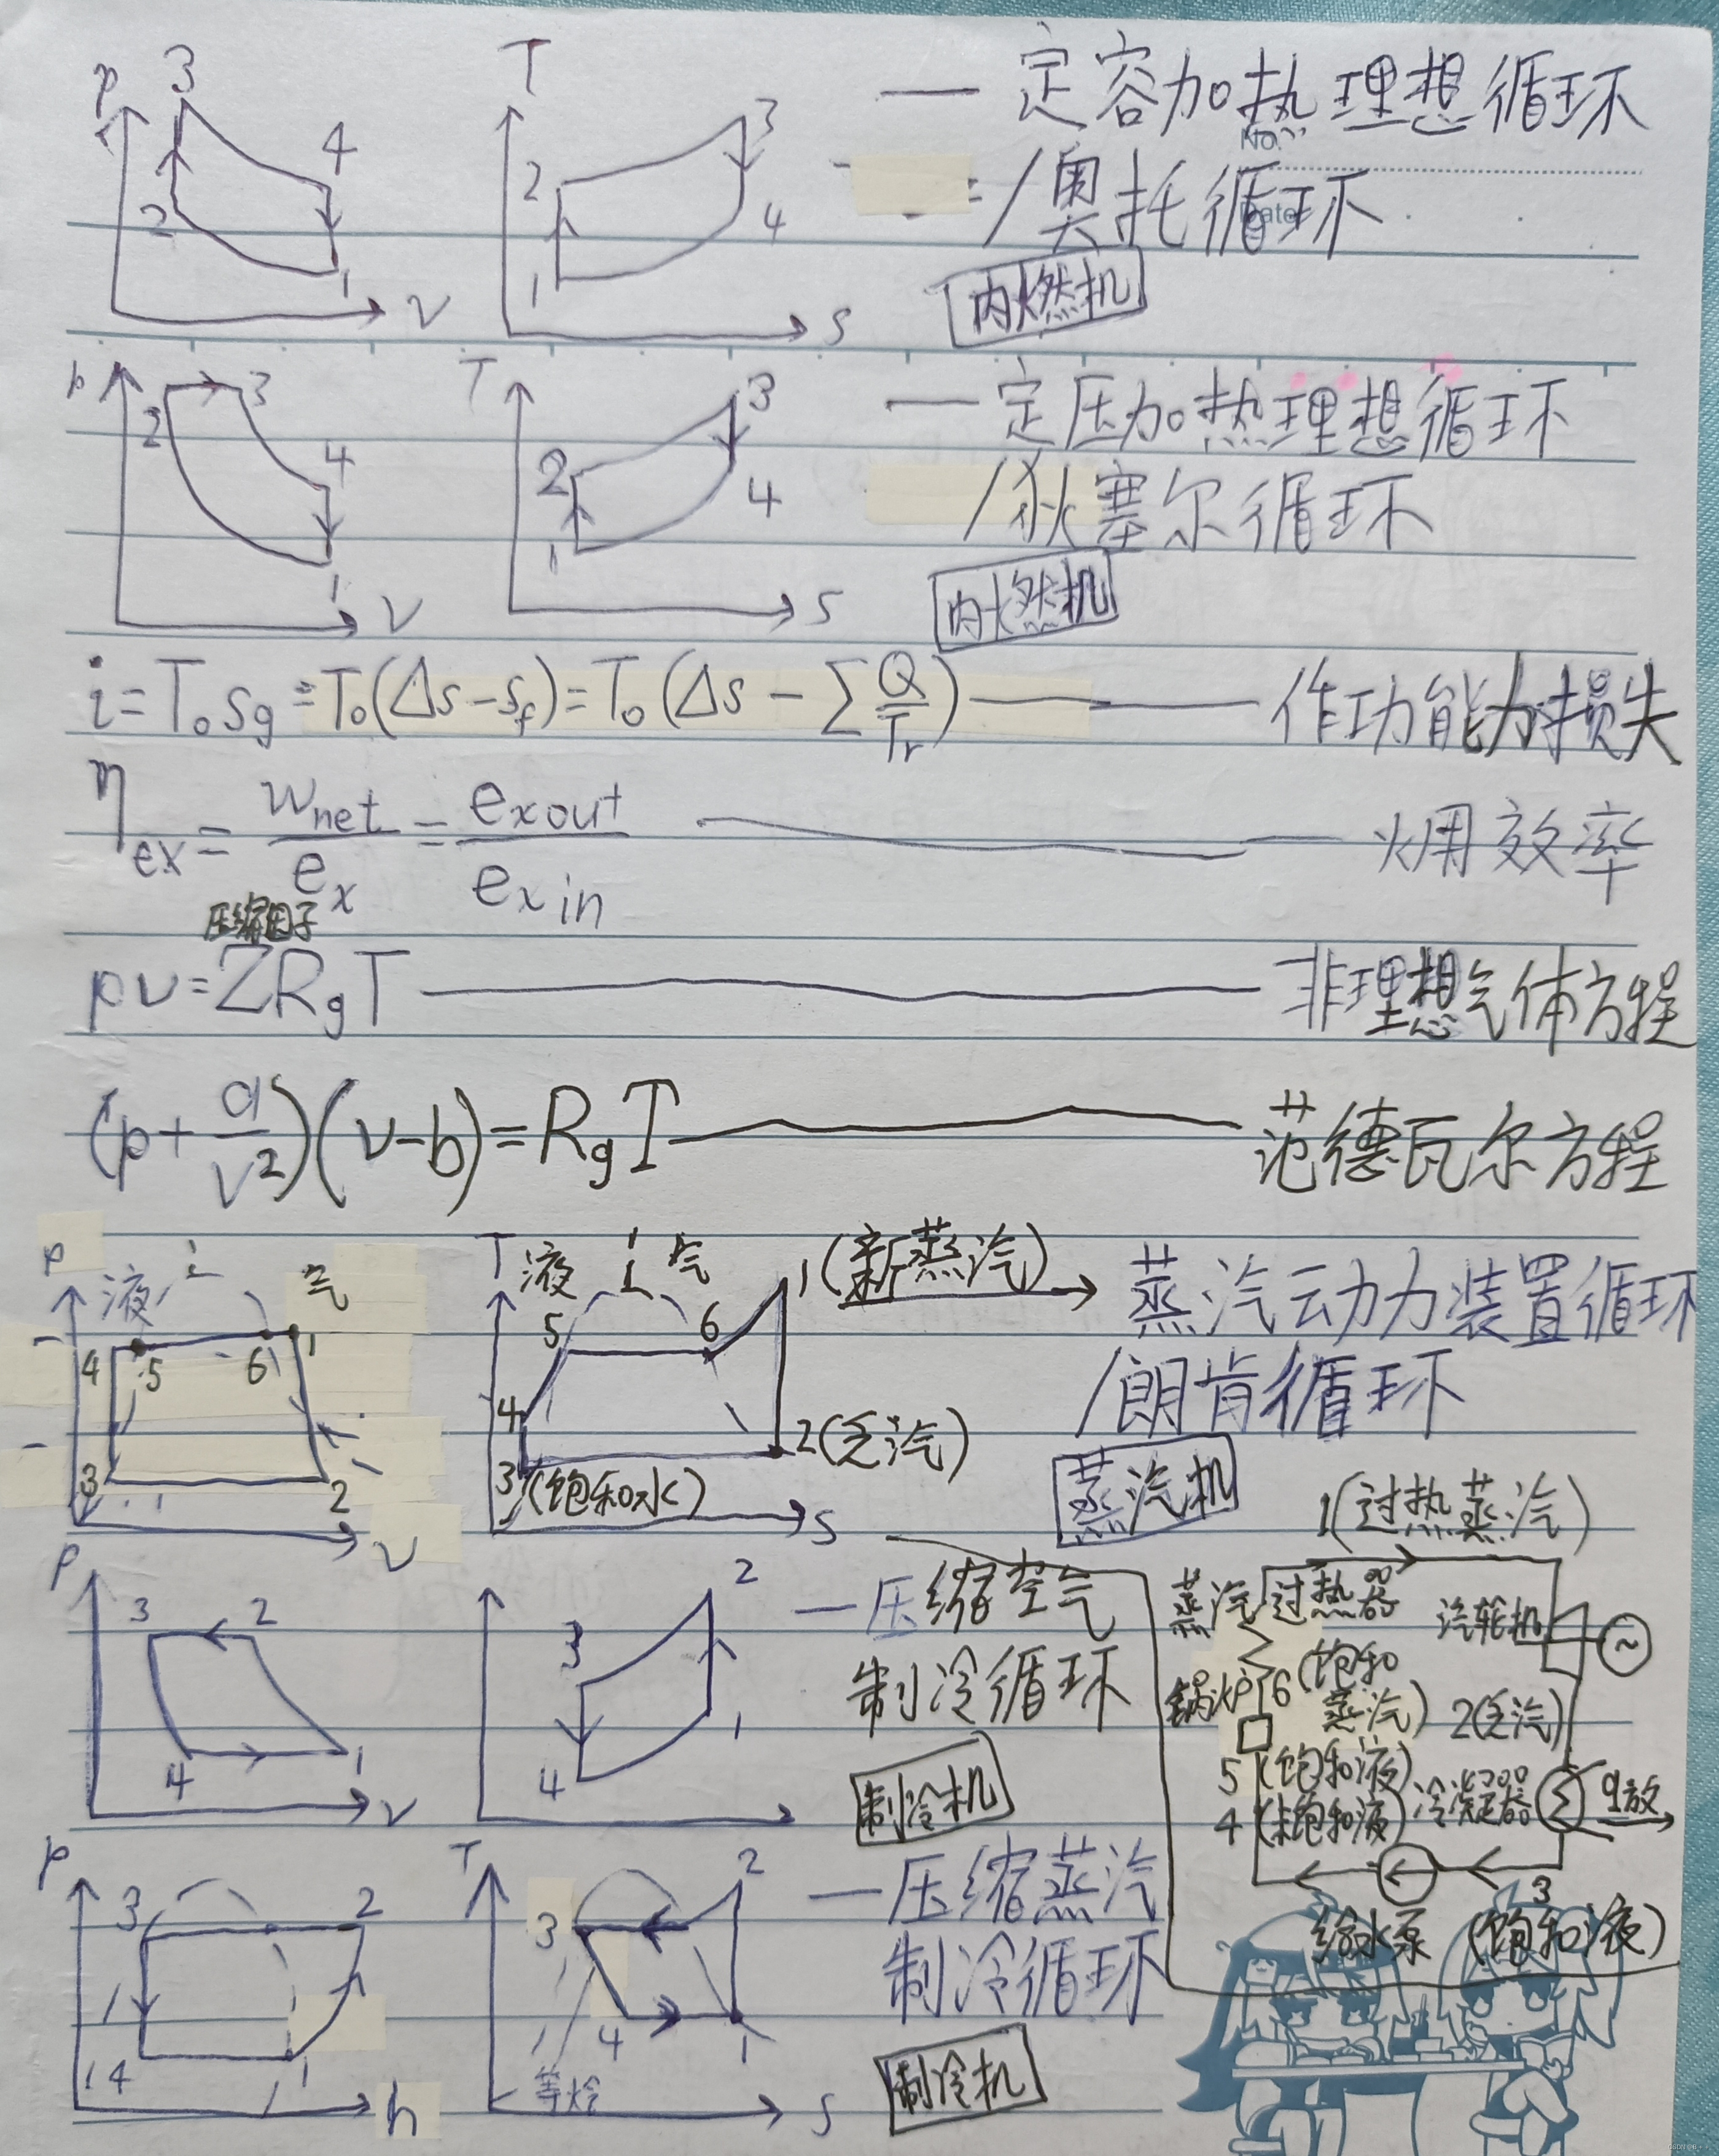 p 3 4 2 1 v
T 3 2 4 1 s
— 定容加热理想循环
No.
/奥托循环
Date
内燃机
p 2 3 4 1 v
T 3 2 4 1 s
— 定压加热理想循环
/狄塞尔循环
内燃机
i = T₀ s_g = T₀(Δs - s_f) = T₀(Δs - ∑ Q/T_r) —— 作功能力损失
η_ex = w_net/e_x = e_x out/e_x in —— 㶲效率
压缩因子
pv = ZR_gT —— 非理想气体方程
(p + a/v²)(v - b) = R_gT —— 范德瓦尔方程
p 液 气 4 5 6 1 3 2 v
T 液 气 1(新蒸汽) 5 6 4 2(乏汽) 3(饱和水) s
蒸汽动力装置循环
/朗肯循环
蒸汽机
1(过热蒸汽)
蒸汽过热器
汽轮机 ~
锅炉 6(饱和蒸汽)
2(乏汽)
5(饱和液)
4(未饱和液)
冷凝器 q放
给水泵
3(饱和液)
p 3 2 4 1 v
2 3 1 4
— 压缩空气
制冷循环
制冷机
p 3 2 4 1 h
T 2 3 4 1 等焓 s
— 压缩蒸汽
制冷循环
制冷机